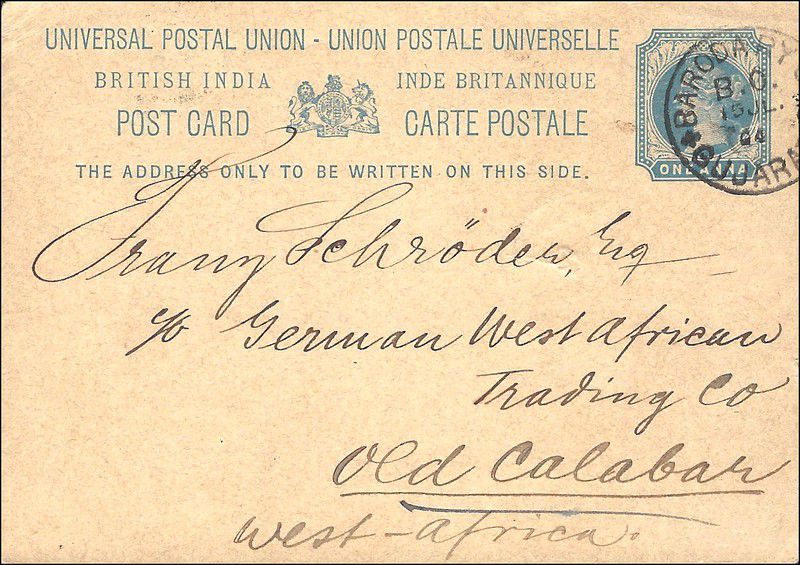 UNIVERSAL POSTAL UNION - UNION POSTALE UNIVERSELLE
BRITISH INDIA INDE BRITANNIQUE
POST CARD CARTE POSTALE
THE ADDRESS ONLY TO BE WRITTEN ON THIS SIDE.
ONE ANNA
BARODA
B.O.
15 JL.
Franz Schröder, Esq
c/o German West African
Trading Co
Old Calabar
West-Africa.